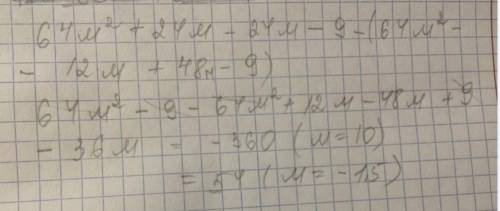 64м² + 24м - 24м - 9 - (64м² -
- 12м + 48м - 9)
64м² - 9 - 64м² + 12м - 48м + 9
- 36м = -360 (м=10)
= 54 (м = -1,5)